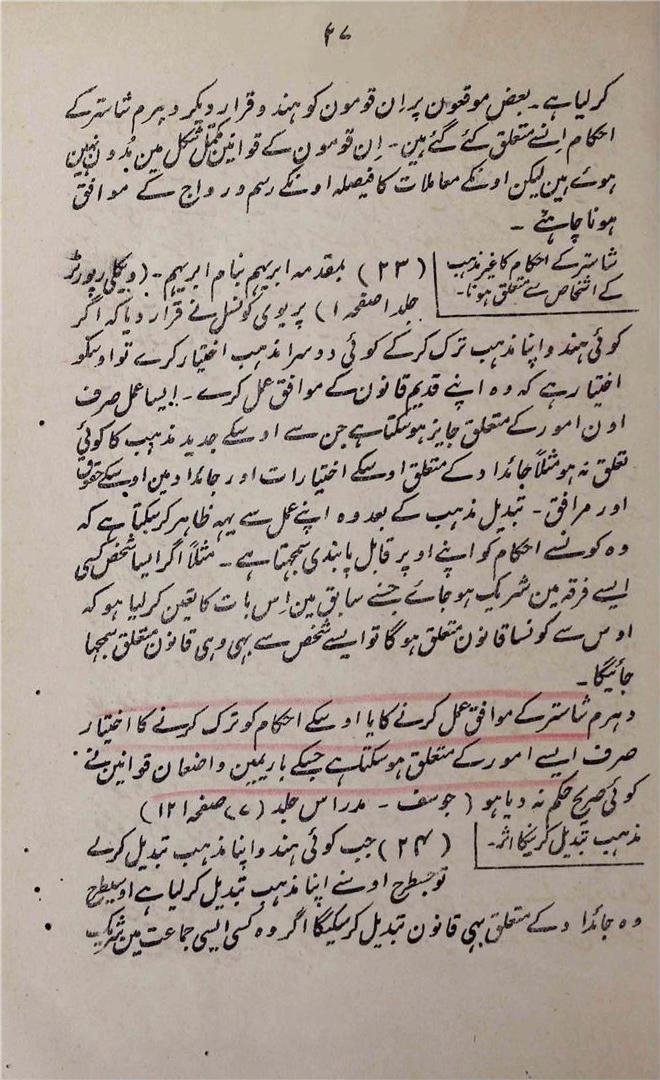 ۴۷
کر لیا ہے۔ بعض موقعون پر اِن قومون کو ہندو قرار دیکر دہرم شاستر کے
احکام اِنسے متعلق کئے گئے ہین۔ اِن قومون کے قوانین مکمل شکل مین مُدون نہین
ہوئے ہین لیکن اونکے معاملات کا فیصلہ اونکے رسم و رواج کے موافق
ہونا چاہئے ۔
شاستر کے احکام کا غیر مذہب
کے اشخاص سے متعلق ہونا۔
(۲۳) بمقدمہ ابریہم بنام ابریہم۔ (ویکلی رپورٹر
جلد ۱ صفحہ ۱) پریوی کونسل نے قرار دیا کہ اگر
کوئی ہندو اپنا مذہب ترک کرکے کوئی دوسرا مذہب اختیار کرے تو اوسکو
اختیار ہے کہ وہ اپنے قدیم قانون کے موافق عمل کرے ۔ ایسا عمل صرف
اون امور کے متعلق جایز ہوسکتا ہے جن سے اوسکے جدید مذہب کا کوئی
تعلق نہ ہو مثلاً جائداد کے متعلق اوسکے اختیارات اور جائداد مین اوسکے حقوق
اور مرافق ۔ تبدیل مذہب کے بعد وہ اپنے عمل سے یہہ ظاہر کرسکتا ہے کہ
وہ کونسے احکام کو اپنے اوپر قابل پابندی سمجہتا ہے ۔ مثلاً اگر ایسا شخص کسی
ایسے فرقہ مین شریک ہو جائے جسنے سابق مین اِس بات کا تعین کر لیا ہو کہ
اوس سے کونسا قانون متعلق ہوگا تو ایسے شخص سے بہی وہی قانون متعلق سمجہا
جائیگا ۔
دہرم شاستر کے موافق عمل کرنے کا یا اوسکے احکام کو ترک کرنے کا اختیار
صرف ایسے امور کے متعلق ہوسکتا ہے جسکے بارہمین واضعان قوانین نے
کوئی صریح حکم نہ دیا ہو (جوسف ۔ مدراس جلد (۷) صفحہ ۱۲۱)
مذہب تبدیل کرنیکا اثر۔
(۲۴) جب کوئی ہندو اپنا مذہب تبدیل کرلے
تو جسطرح اوسنے اپنا مذہب تبدیل کر لیا ہے اوسیطرح
وہ جائداد کے متعلق بہی قانون تبدیل کرسکیگا اگر وہ کسی ایسی جماعت مین شریک